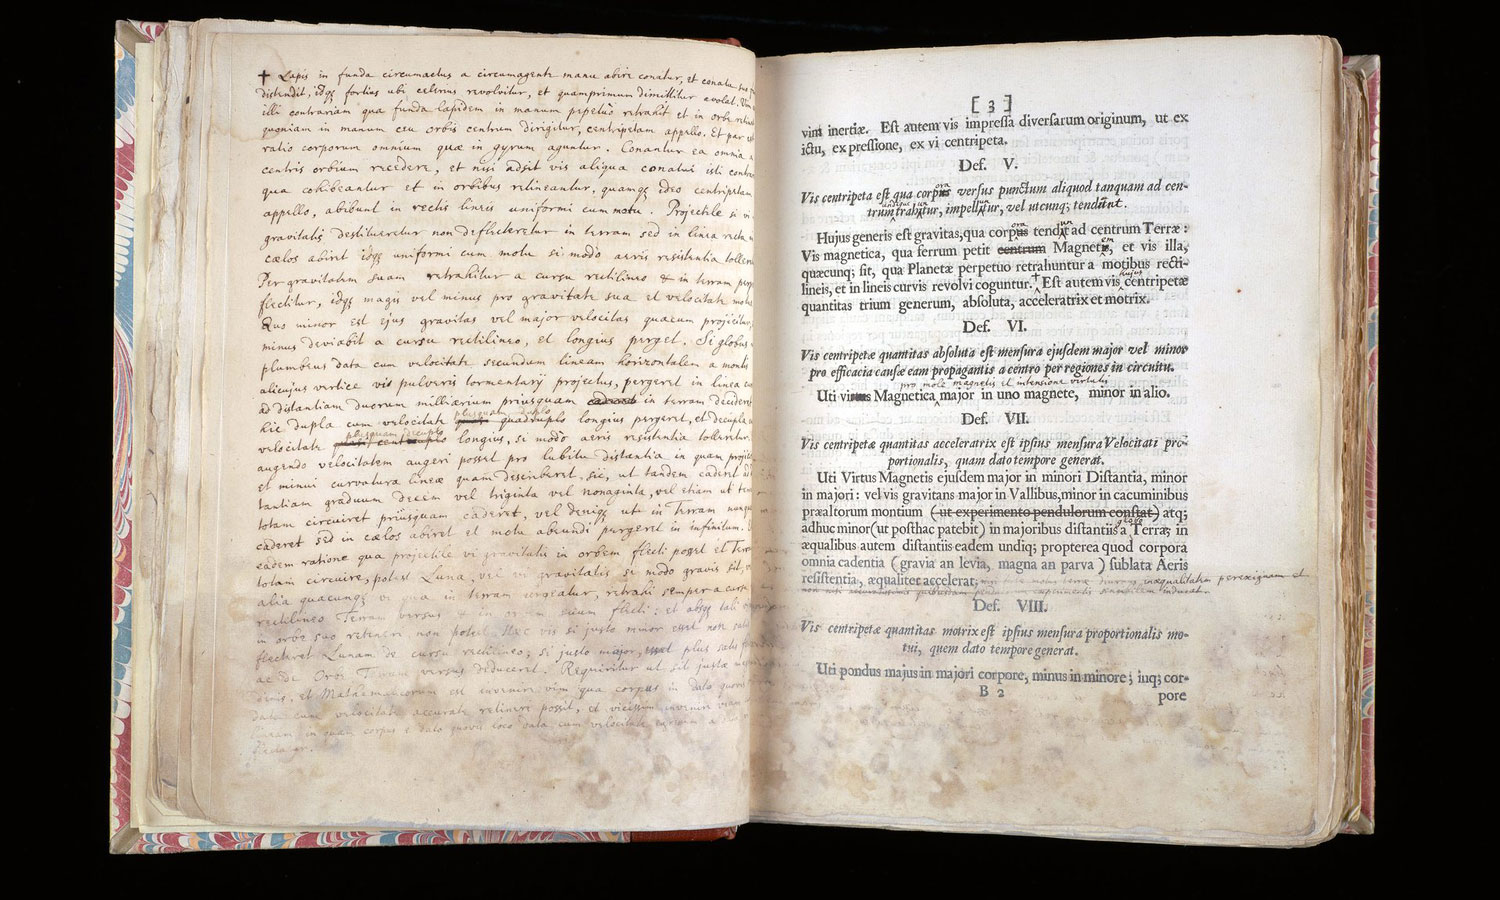 ✝ Lapis in funda circumactus a circumagente manu abire conatur, et conatu suo
distendit, idq; fortius ubi celerius revolvitur, et quamprimum dimittitur evolat. Vim
illi contrariam qua funda lapidem in manum perpetuo retrahit et in orbe retinet
quoniam in manum ceu orbis centrum dirigitur, centripetam appello. Et par est
ratio corporum omnium quæ in gyrum aguntur. Conantur ea omnia a
centris orbium recedere, et nisi adsit vis aliqua conatui isti contraria
qua cohibeantur et in orbibus retineantur, quamq; ideo centripetam
appello, abibunt in rectis lineis uniformi cum motu. Projectile si vi
gravitatis destitueretur non deflecteretur in terram sed in linea recta in
cælos abiret idq; uniformi cum motu si modo aeris resistentia tolleretur
Per gravitatem suam retrahitur a cursu rectilineo & in terram perpetuo
flectitur, idq; magis vel minus pro gravitate sua et velocitate motus.
Quo minor est ejus gravitas vel major velocitas quacum projicitur
minus deviabit a cursu rectilineo, et longius perget. Si globus
plumbeus data cum velocitate secundum lineam horizontalem a montis
alicujus vertice vis pulveris tormentarij projectus, pergeret in linea curva
ad distantiam duorum milliarium priusquam caderet in terram decideret
plusquam duplo
hic dupla cum velocitate quadruplo longius pergeret, et decupla cum
plusquam decuplo
velocitate centuplo longius, si modo aeris resistentia tolleretur.
augendo velocitatem augeri posset pro lubitu distantia in quam projiceretur
et minui curvatura lineæ quam describeret, sic, ut tandem caderet ad
tantiam graduum decem vel triginta vel nonaginta, vel etiam ut terram
totam circuiret priusquam caderet, vel deniq; ut in Terram nunquam
caderet sed in cælos abiret et motu abeundi pergeret in infinitum.
eadem ratione qua projectile vi gravitatis in orbem flecti posset et Terram
totam circuire, potest Luna, vel vi gravitatis si modo gravis sit, vel
alia quacunq; vi qua in terram urgeatur, retrahi semper a cursu
rectilineo Terram versus & in orbem suum flecti: et absq; tali vi
in orbe suo retineri non potest. Hæc vis si justo minor esset non satis
flecteret Lunam de cursu rectilineo; si justo major, plus satis flecteret
ac de Orbe Terram versus deduceret. Requiritur ut sit justæ magni
dinis, et Mathematicorum est invenire vim qua corpus in dato quovis
data cum velocitate accurate retineri possit, et vicissim invenire viam
lineam in quam corpus e dato quovis loco data cum velocitate egressum a data vi
[3]
vim inertiæ. Est autem vis impressa diversarum originum, ut ex
ictu, ex pressione, ex vi centripeta.
Def. V.
ora
Vis centripeta est qua corpus versus punctum aliquod tanquam ad cen-
undique un
trum trahitur, impellitur, vel utcunq; tendunt.
ora un
Hujus generis est gravitas, qua corpus tendit ad centrum Terræ:
em
Vis magnetica, qua ferrum petit centrum Magnetis, et vis illa,
quæcunq; sit, qua Planetæ perpetuo retrahuntur a motibus recti-
hujus
lineis, et in lineis curvis revolvi coguntur.✝ Est autem vis centripetæ
quantitas trium generum, absoluta, acceleratrix et motrix.
Def. VI.
Vis centripetæ quantitas absoluta est mensura ejusdem major vel minor
pro efficacia causæ eam propagantis a centro per regiones in circuitu.
pro mole magnetis et intensione virtutis
Uti virtus Magnetica major in uno magnete, minor in alio.
Def. VII.
Vis centripetæ quantitas acceleratrix est ipsius mensura Velocitati pro-
portionalis, quam dato tempore generat.
Uti Virtus Magnetis ejusdem major in minori Distantia, minor
in majori: vel vis gravitans major in Vallibus, minor in cacuminibus
præaltorum montium (ut experimento pendulorum constat) atq;
globo
adhuc minor (ut posthac patebit) in majoribus distantiis a Terra; in
æqualibus autem distantiis eadem undiq; propterea quod corpora
omnia cadentia (gravia an levia, magna an parva) sublata Aeris
resistentia, æqualiter accelerat; inæqualitatem perexiguam et
Def. VIII.
Vis centripetæ quantitas motrix est ipsius mensura proportionalis mo-
tui, quem dato tempore generat.
Uti pondus majus in majori corpore, minus in minore; inq; cor-
B 2
pore